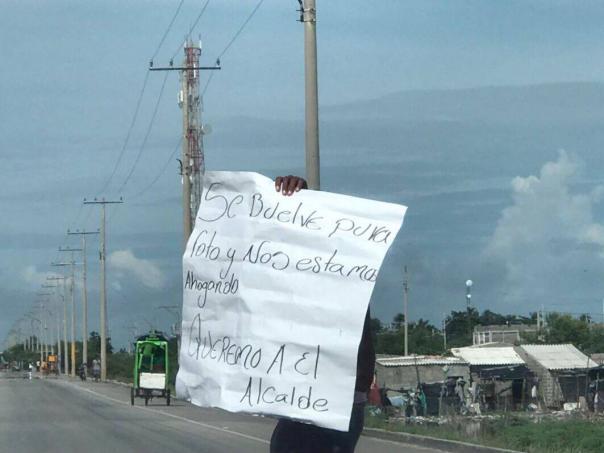 Se Buelve pura
foto y Nos estamos
Ahogando
Queremo A El
Alcalde